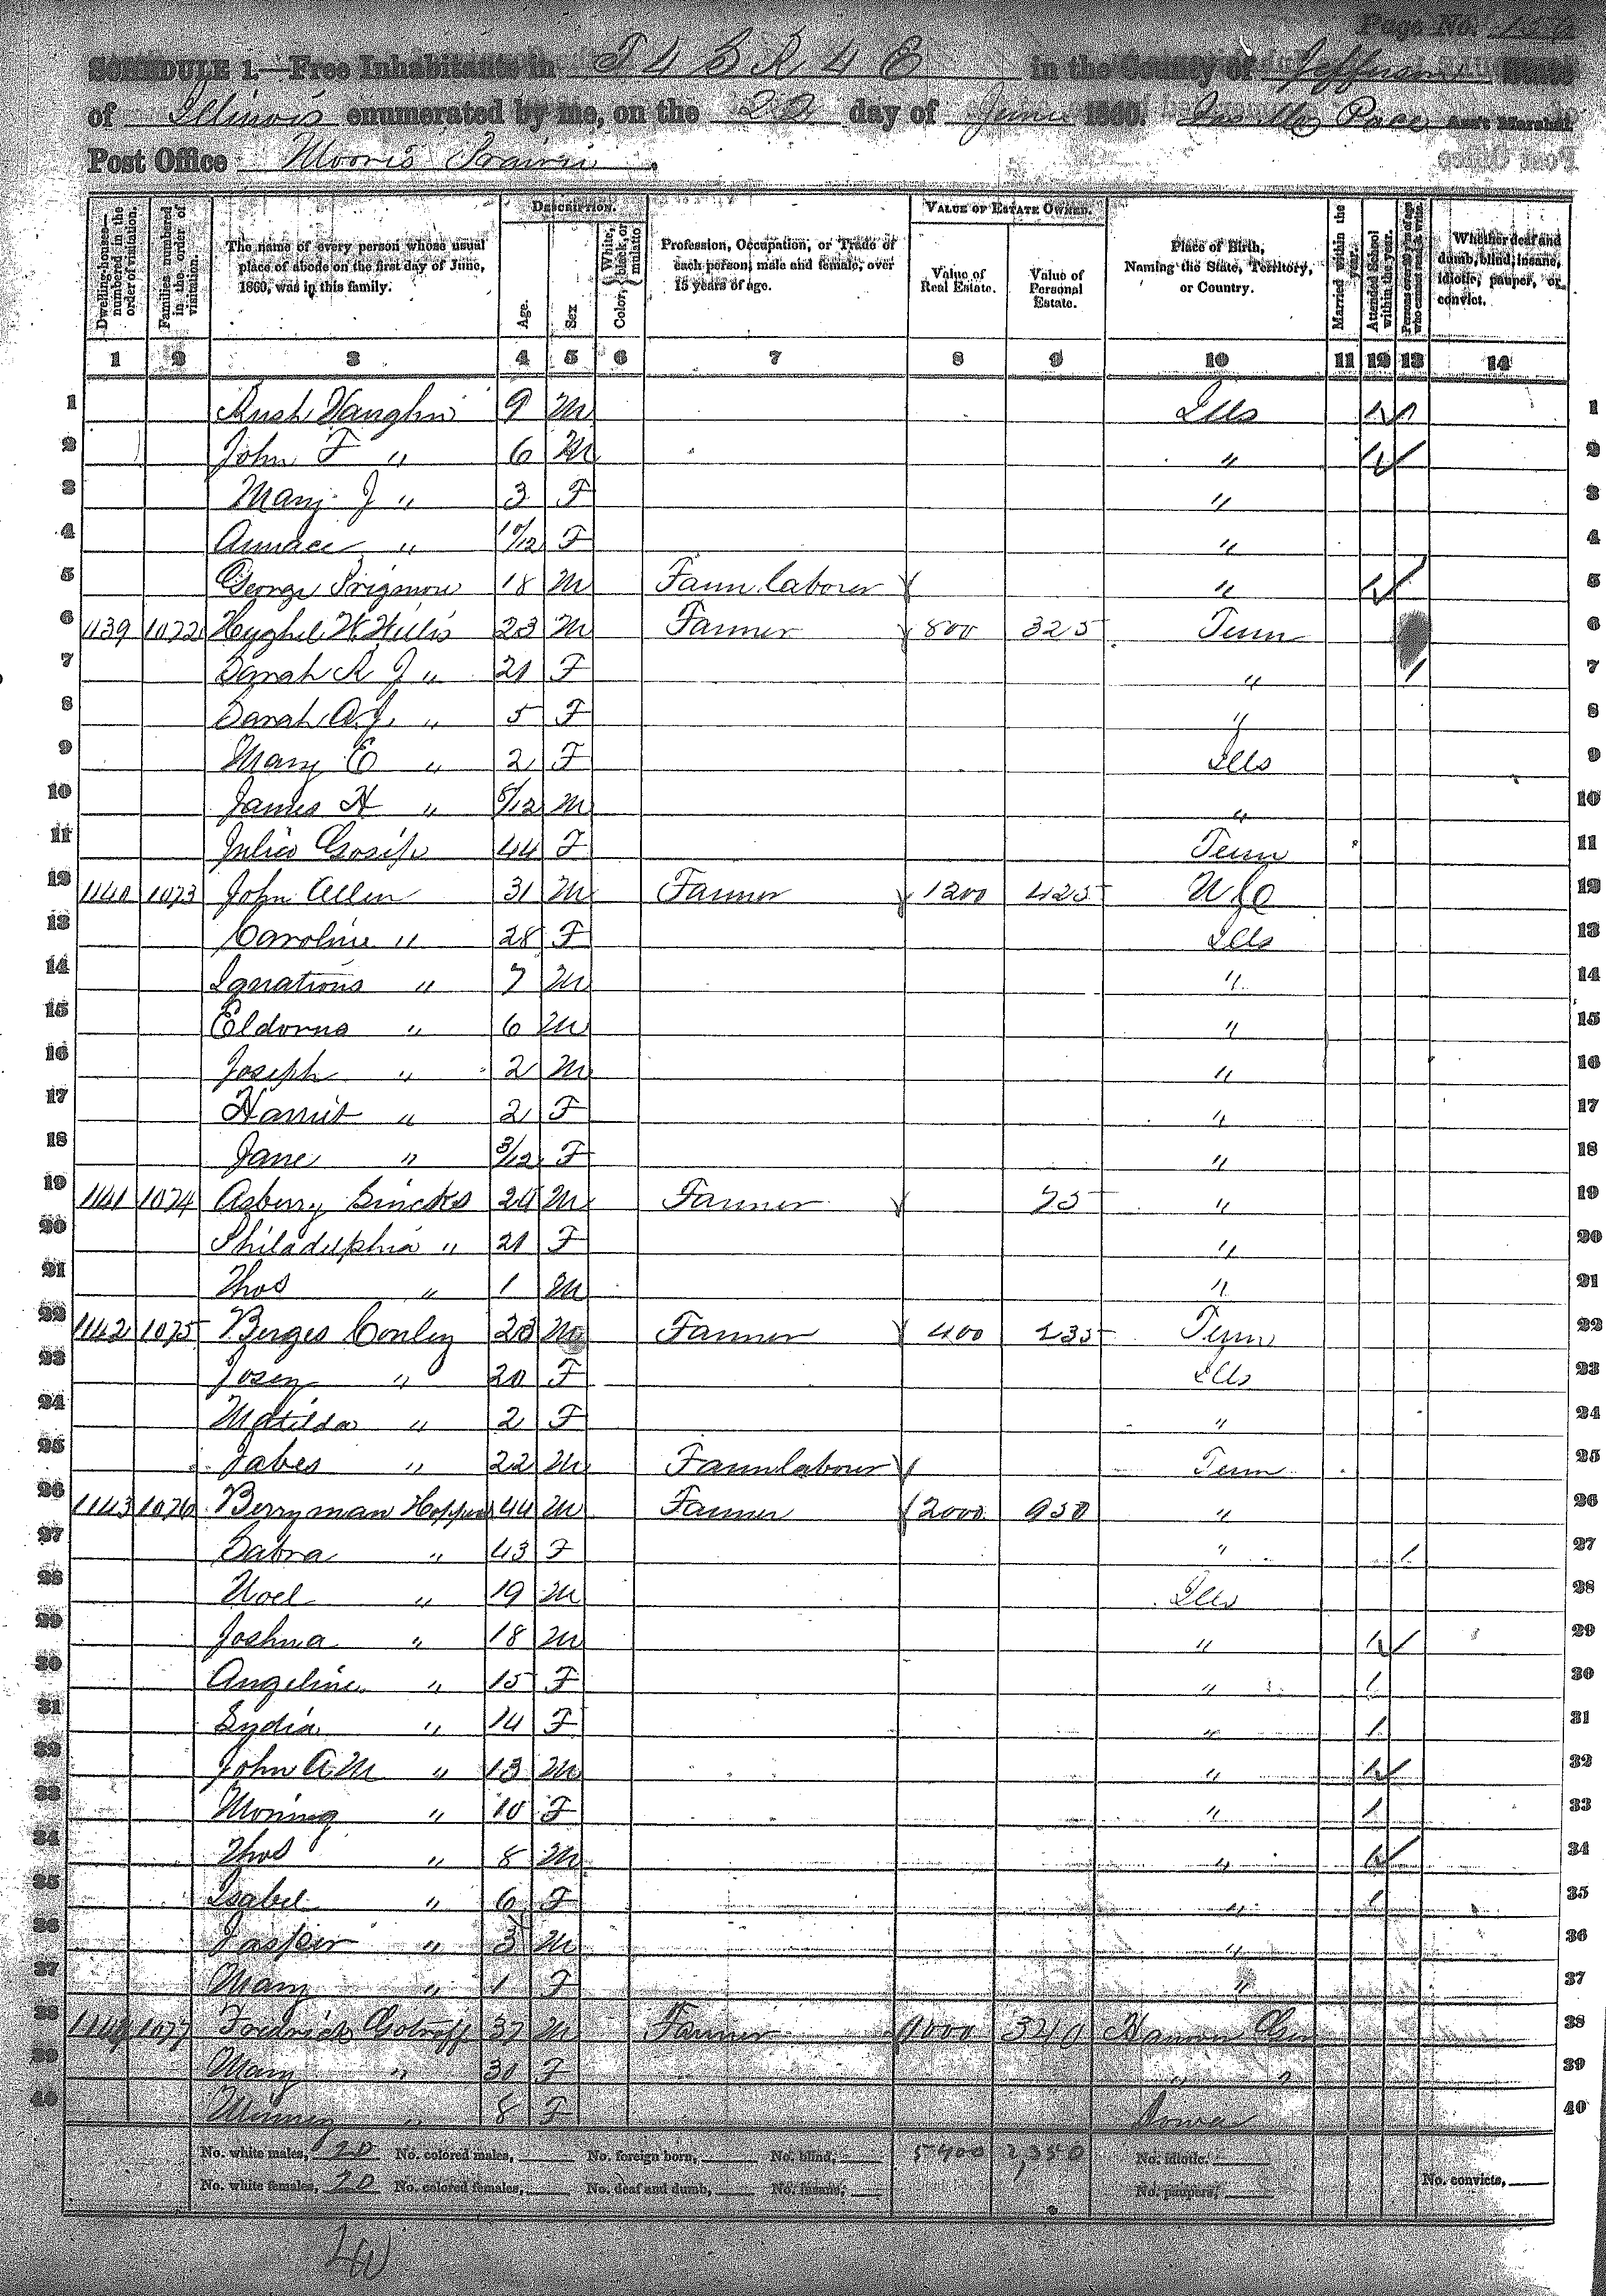 Page No.
SCHEDULE 1.—Free Inhabitants in T 4 S R 4 E in the County of Jefferson State
of Illinois enumerated by me, on the 22 day of June 1860. Pace Ass't Marshal.
Post Office Moores Prairie.
Dwelling-houses—numbered in the order of visitation.
Families numbered in the order of visitation.
The name of every person whose usual place of abode on the first day of June, 1860, was in this family.
DESCRIPTION.
Age.
Sex
Color, {White, black, or mulatto
Profession, Occupation, or Trade of each person, male and female, over 15 years of age.
VALUE OF ESTATE OWNED.
Value of Real Estate.
Value of Personal Estate.
Place of Birth, Naming the State, Territory, or Country.
Married within the year.
Attended School within the year.
Persons over 20 y'rs of age who cannot read & write.
Whether deaf and dumb, blind, insane, idiotic, pauper, or convict.
1 2 3 4 5 6 7 8 9 10 11 12 13 14
1 Rush Vaughn 9 M Ills 1 1
2 John F " 6 M " 1 2
3 Mary J " 3 F " 3
4 " 10/12 F " 4
5 George Prigmore 18 M Farm laborer " 1 5
6 1139 1072 W. Willis 23 M Farmer 800 325 Tenn 6
7 Sarah R J " 21 F " 1 7
8 Sarah A. J. " 5 F " 8
9 Mary E " 2 F Ills 9
10 James H " 5/12 M " 10
11 Julia Gossip 44 F Tenn 11
12 1140 1073 John Allen 31 M Farmer 1200 425 N C 12
13 Caroline " 28 F Ills 13
14 Ignatious " 7 M " 14
15 Eldorus " 6 M " 15
16 Joseph " 2 M " 16
17 Harriet " 2 F " 17
18 Jane " 3/12 F " 18
19 1141 1074 Asbury Sincks 24 M Farmer 75 " 19
20 Philadelphia " 21 F " 20
21 Thos " 1 M " 21
22 1142 1075 Berges Conley 23 M Farmer 400 235 Tenn 22
23 Josey " 20 F Ills 23
24 Matilda " 2 F " 24
25 Jabes " 22 M Farm labour Tenn 25
26 1143 1076 Berryman Hopper 44 M Farmer 2000 950 " 26
27 Sabra " 43 F " 1 27
28 Noel " 19 M Ills 28
29 Joshua " 18 M " 1 29
30 Angeline " 15 F " 1 30
31 Lydia " 14 F " 1 31
32 John A M " 13 M " 1 32
33 Morning " 10 F " 1 33
34 Thos " 8 M " 1 34
35 Isabel " 6 F " 1 35
36 Jasper " 3 M " 36
37 Mary " 1 F " 37
38 1144 1077 Fredrick Gotroff 37 M Farmer 1000 340 Hanover Ger 38
39 Mary " 30 F " " 39
40 Minney " 8 F Iowa 40
No. white males, 20 No. colored males, No. foreign born, No. blind, 5400 2,350 No. idiotic,
No. white females, 20 No. colored females, No. deaf and dumb, No. insane, No. paupers, No. convicts,